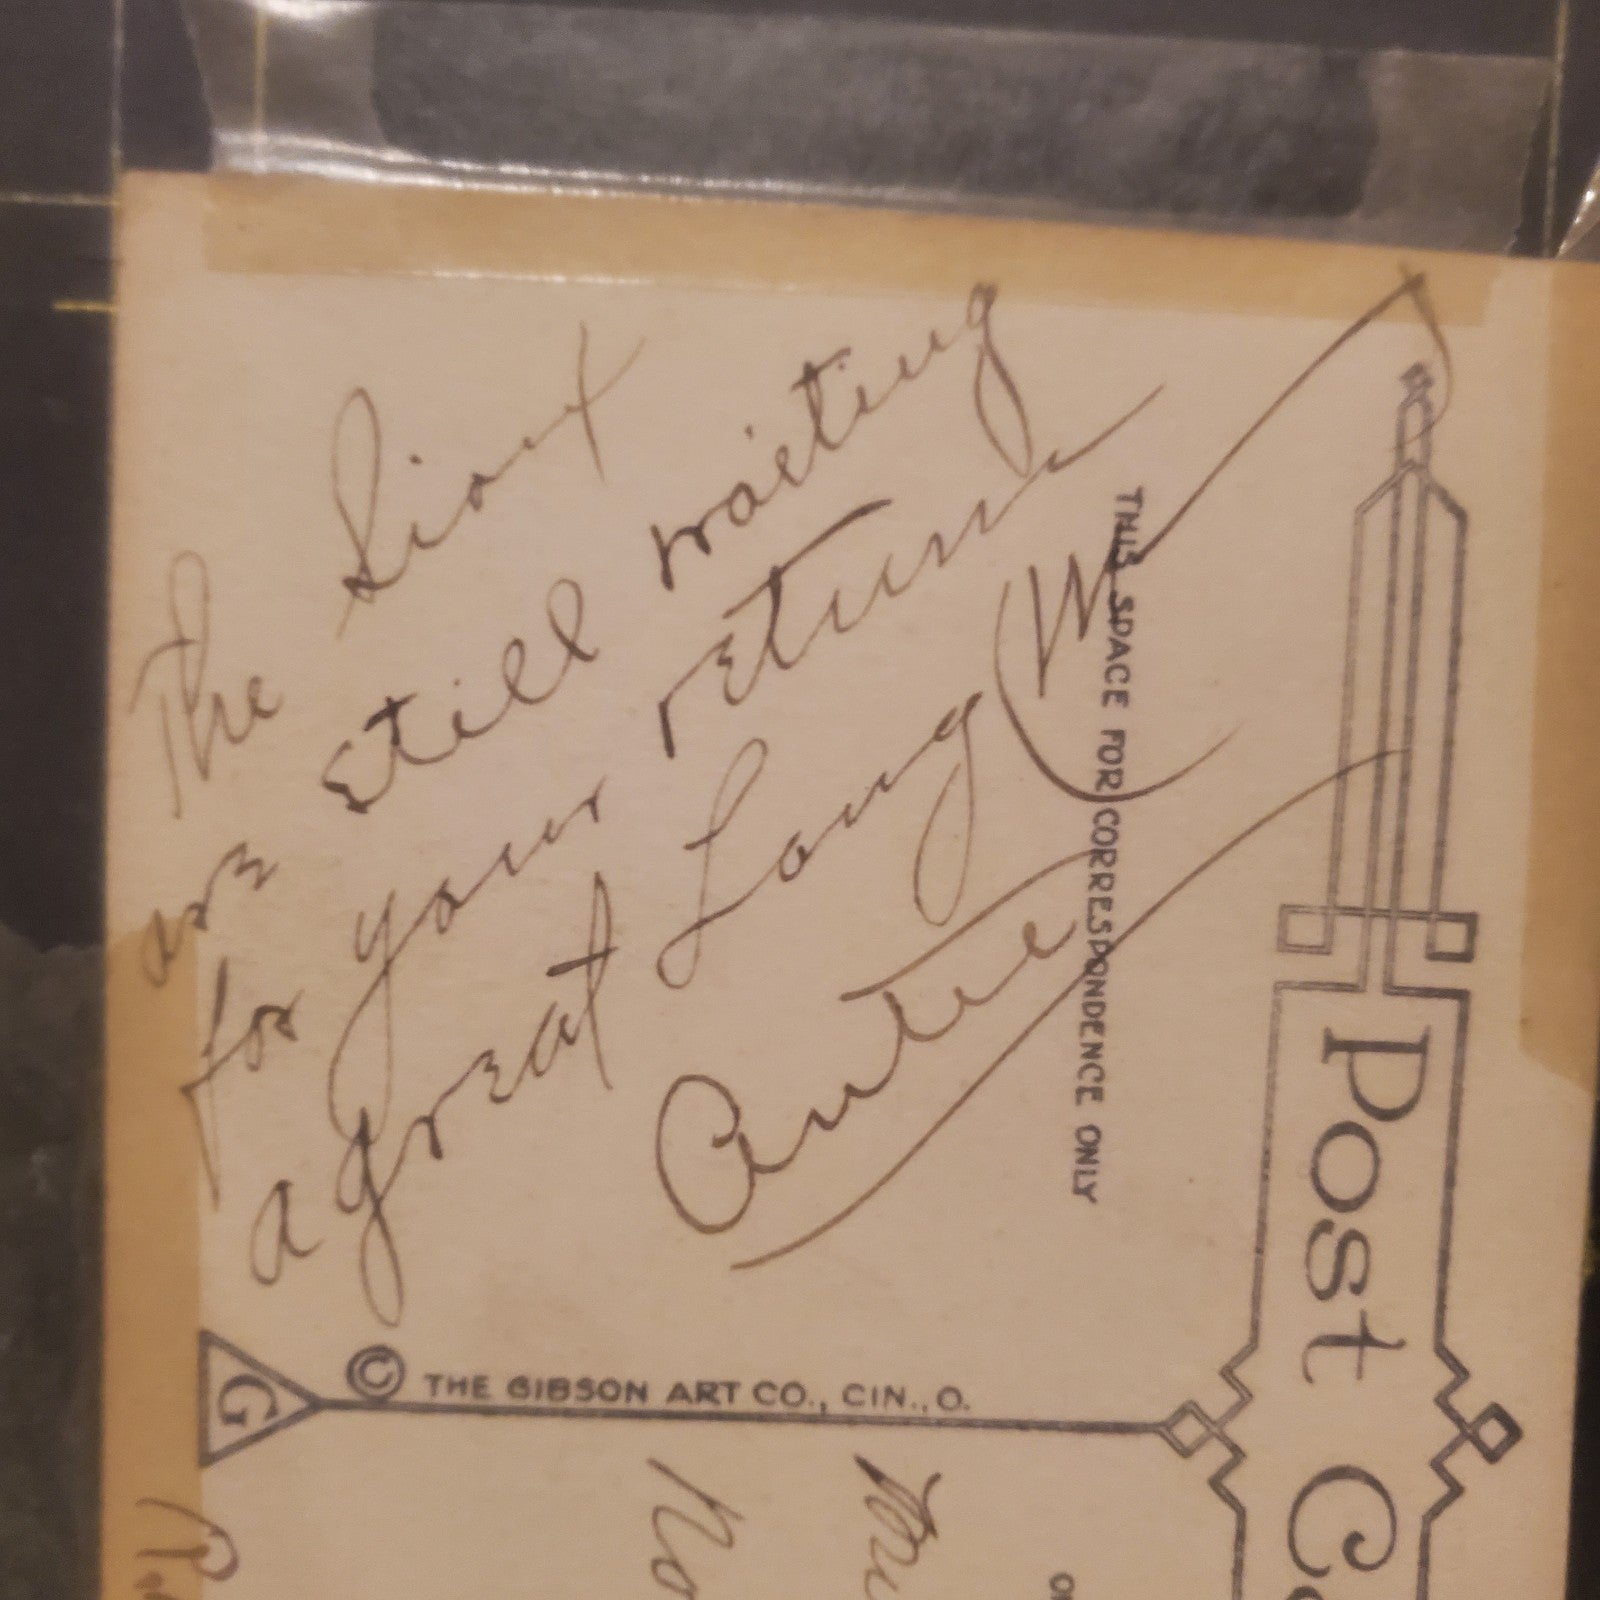 The Sioux
are still waiting
for your return
a great Long
Artie
THIS SPACE FOR CORRESPONDENCE ONLY
Post
G
© THE GIBSON ART CO., CIN., O.